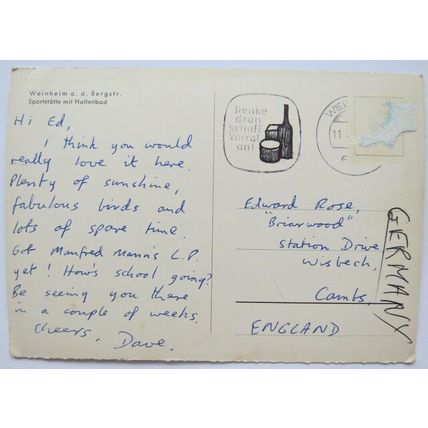 Weinheim a. d. Bergstr.
Sportstätte mit Hallenbad
Hi Ed,
I think you would
really love it here.
Plenty of sunshine,
fabulous birds and
lots of spare time.
Got Manfred Mann's L.P.
yet! How's school going?
Be seeing you there
in a couple of weeks.
Cheers, Dave.
Denke
dran
schaff
Vorrat
an!
11.
Edward Rose,
"Briarwood"
Station Drive
Wisbech,
Cambs,
ENGLAND
GERMANY